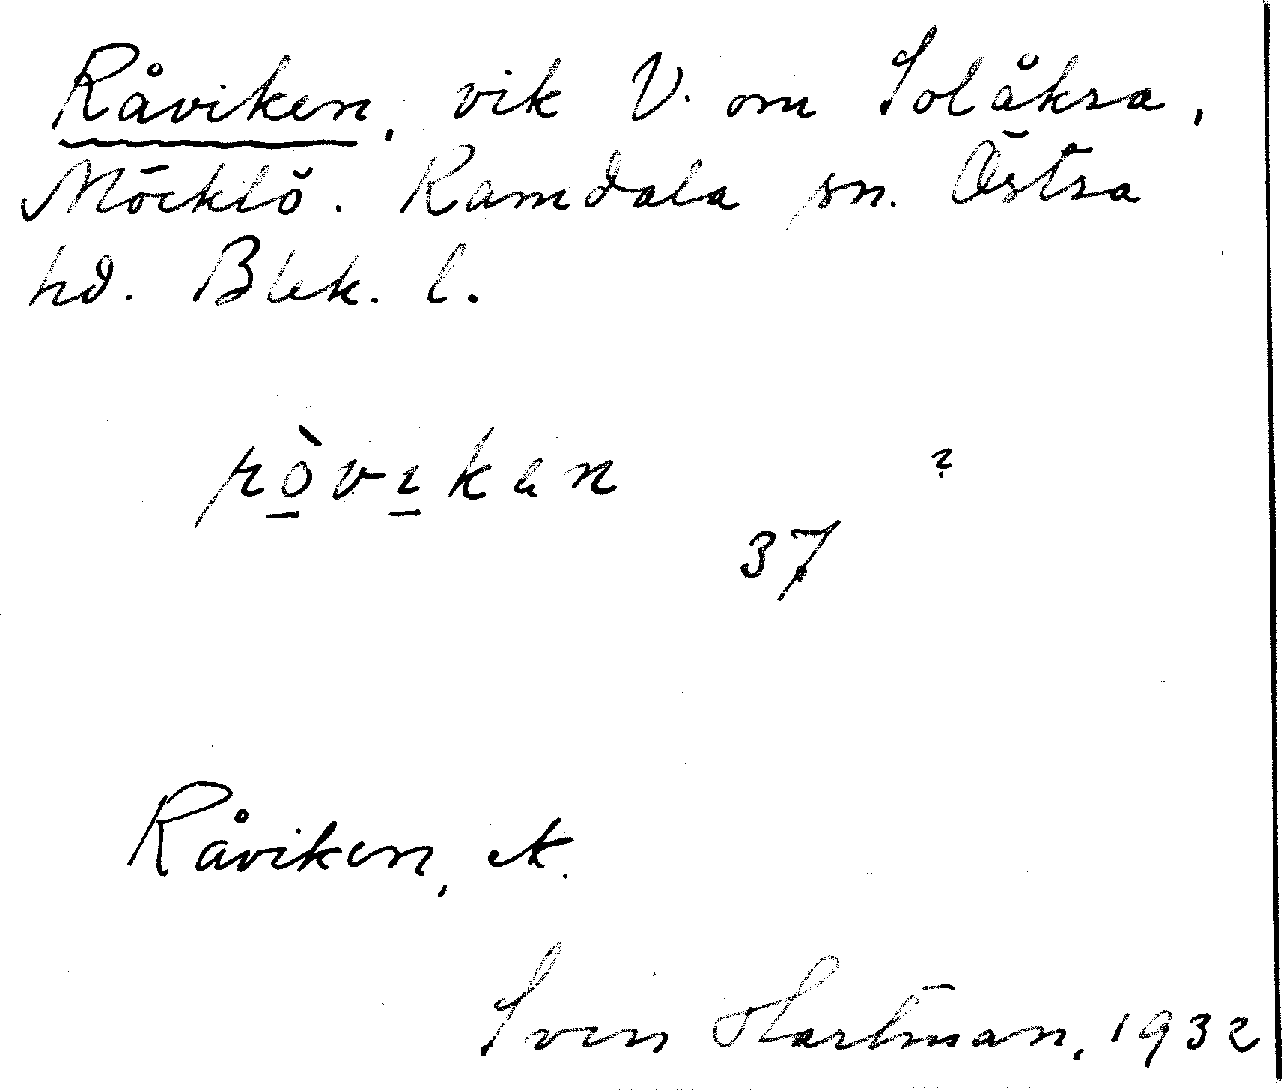 Råviken, vik V. om Solåkra,
Möcklö. Ramdala sn. Östra
hd. Blek. l.
rò̱vı̱kən
?
37
Råviken, ek.
Sven Hartman, 1932